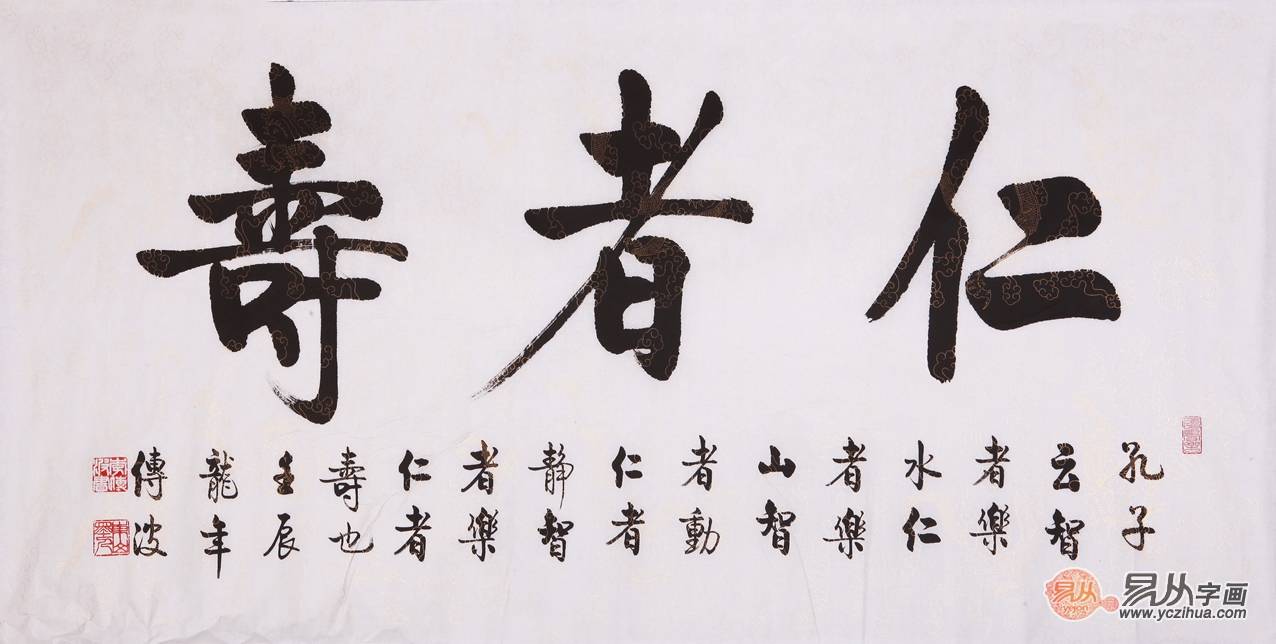 仁者壽
孔子
云智
者樂
水仁
者樂
山智
者動
仁者
静智
者樂
仁者
壽也
壬辰
龍年
傳波
易从
yejon
易从字画
www.yczihua.com